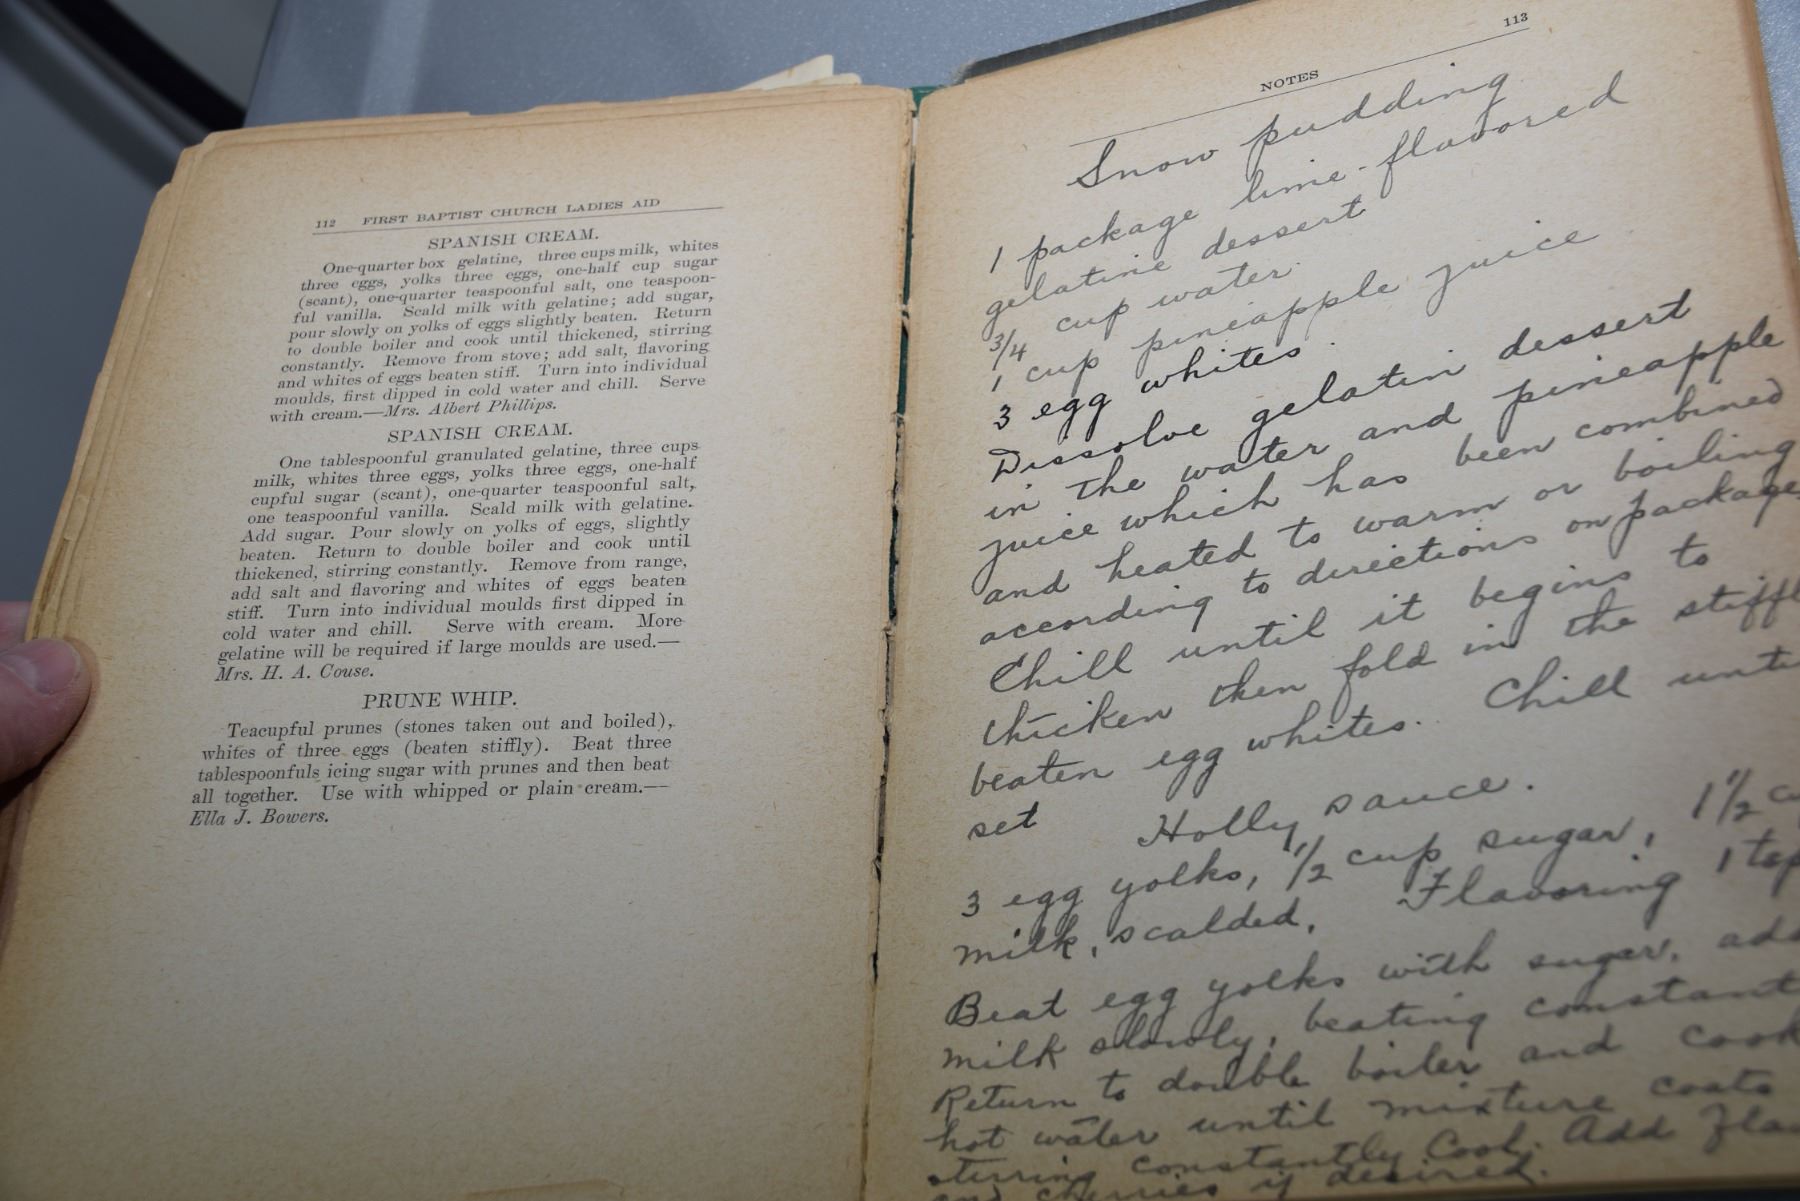 112 FIRST BAPTIST CHURCH LADIES AID
SPANISH CREAM.
One-quarter box gelatine, three cups milk, whites
three eggs, yolks three eggs, one-half cup sugar
(scant), one-quarter teaspoonful salt, one teaspoon-
ful vanilla. Scald milk with gelatine; add sugar,
pour slowly on yolks of eggs slightly beaten. Return
to double boiler and cook until thickened, stirring
constantly. Remove from stove; add salt, flavoring
and whites of eggs beaten stiff. Turn into individual
moulds, first dipped in cold water and chill. Serve
with cream.—Mrs. Albert Phillips.
SPANISH CREAM.
One tablespoonful granulated gelatine, three cups
milk, whites three eggs, yolks three eggs, one-half
cupful sugar (scant), one-quarter teaspoonful salt,
one teaspoonful vanilla. Scald milk with gelatine.
Add sugar. Pour slowly on yolks of eggs, slightly
beaten. Return to double boiler and cook until
thickened, stirring constantly. Remove from range,
add salt and flavoring and whites of eggs beaten
stiff. Turn into individual moulds first dipped in
cold water and chill. Serve with cream. More
gelatine will be required if large moulds are used.—
Mrs. H. A. Couse.
PRUNE WHIP.
Teacupful prunes (stones taken out and boiled),
whites of three eggs (beaten stiffly). Beat three
tablespoonfuls icing sugar with prunes and then beat
all together. Use with whipped or plain cream.—
Ella J. Bowers.
113
NOTES
Snow pudding
1 package lime-flavored
gelatine dessert
3/4 cup water
1 cup pineapple juice
3 egg whites.
Dissolve gelatin dessert
in the water and pineapple
juice which has been combined
and heated to warm or boiling
according to directions on package
Chill until it begins to
thicken then fold in the stiffl
beaten egg whites. Chill unti
set
Holly sauce.
3 egg yolks, 1/2 cup sugar, 1 1/2 cu
milk, scalded, Flavoring 1 tsp
Beat egg yolks with sugar, add
milk slowly, beating constant
Return to double boiler and cook
hot water until mixture coats
stirring constantly Cool. Add Flav
and cherries if desired.